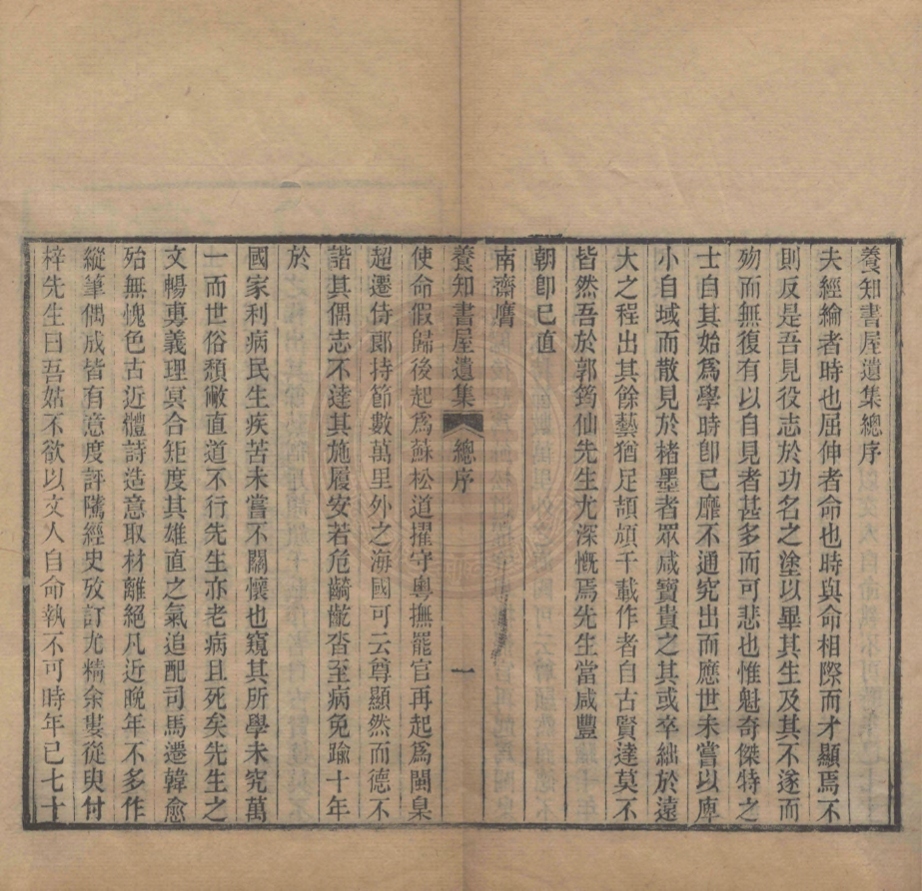 養知書屋遺集總序
夫經綸者時也屈伸者命也時與命相際而才顯焉不
則反是吾見役志於功名之塗以畢其生及其不遂而
歾而無復有以自見者甚多而可悲也惟魁奇傑特之
士自其始爲學時卽已靡不通究出而應世未嘗以庳
小自域而散見於楮墨者眾咸寶貴之其或卒絀於遠
大之程出其餘藝猶足頡頏千載作者自古賢達莫不
皆然吾於郭筠仙先生尤深慨焉先生當咸豐
朝卽已直
南齋膺
養知書屋遺集 總序 一
使命假歸後起爲蘇松道擢守粵撫罷官再起爲閩臬
超遷侍郎持節數萬里外之海國可云尊顯然而德不
諧其偶志不達其施履安若危齮齕沓至病免踰十年
於
國家利病民生疾苦未嘗不關懷也窺其所學未究萬
一而世俗頹敝直道不行先生亦老病且死矣先生之
文暢專義理冥合矩度其雄直之氣追配司馬遷韓愈
殆無愧色古近體詩造意取材離絕凡近晚年不多作
縱筆偶成皆有意度評隲經史攷訂尤精余嘗從臾付
梓先生曰吾姑不欲以文人自命執不可時年已七十